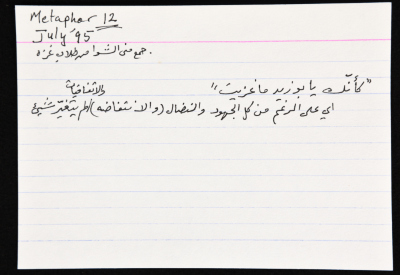 Metaphor 12
July '95
جمع منى الشوا من طلاب غزه.
"كأنّك يا بوزيد ما غزيت"
والاتفاقيات
اي على الرغم من كل الجهود والنضال (والانتفاضه) لم يتغيّر شيئ